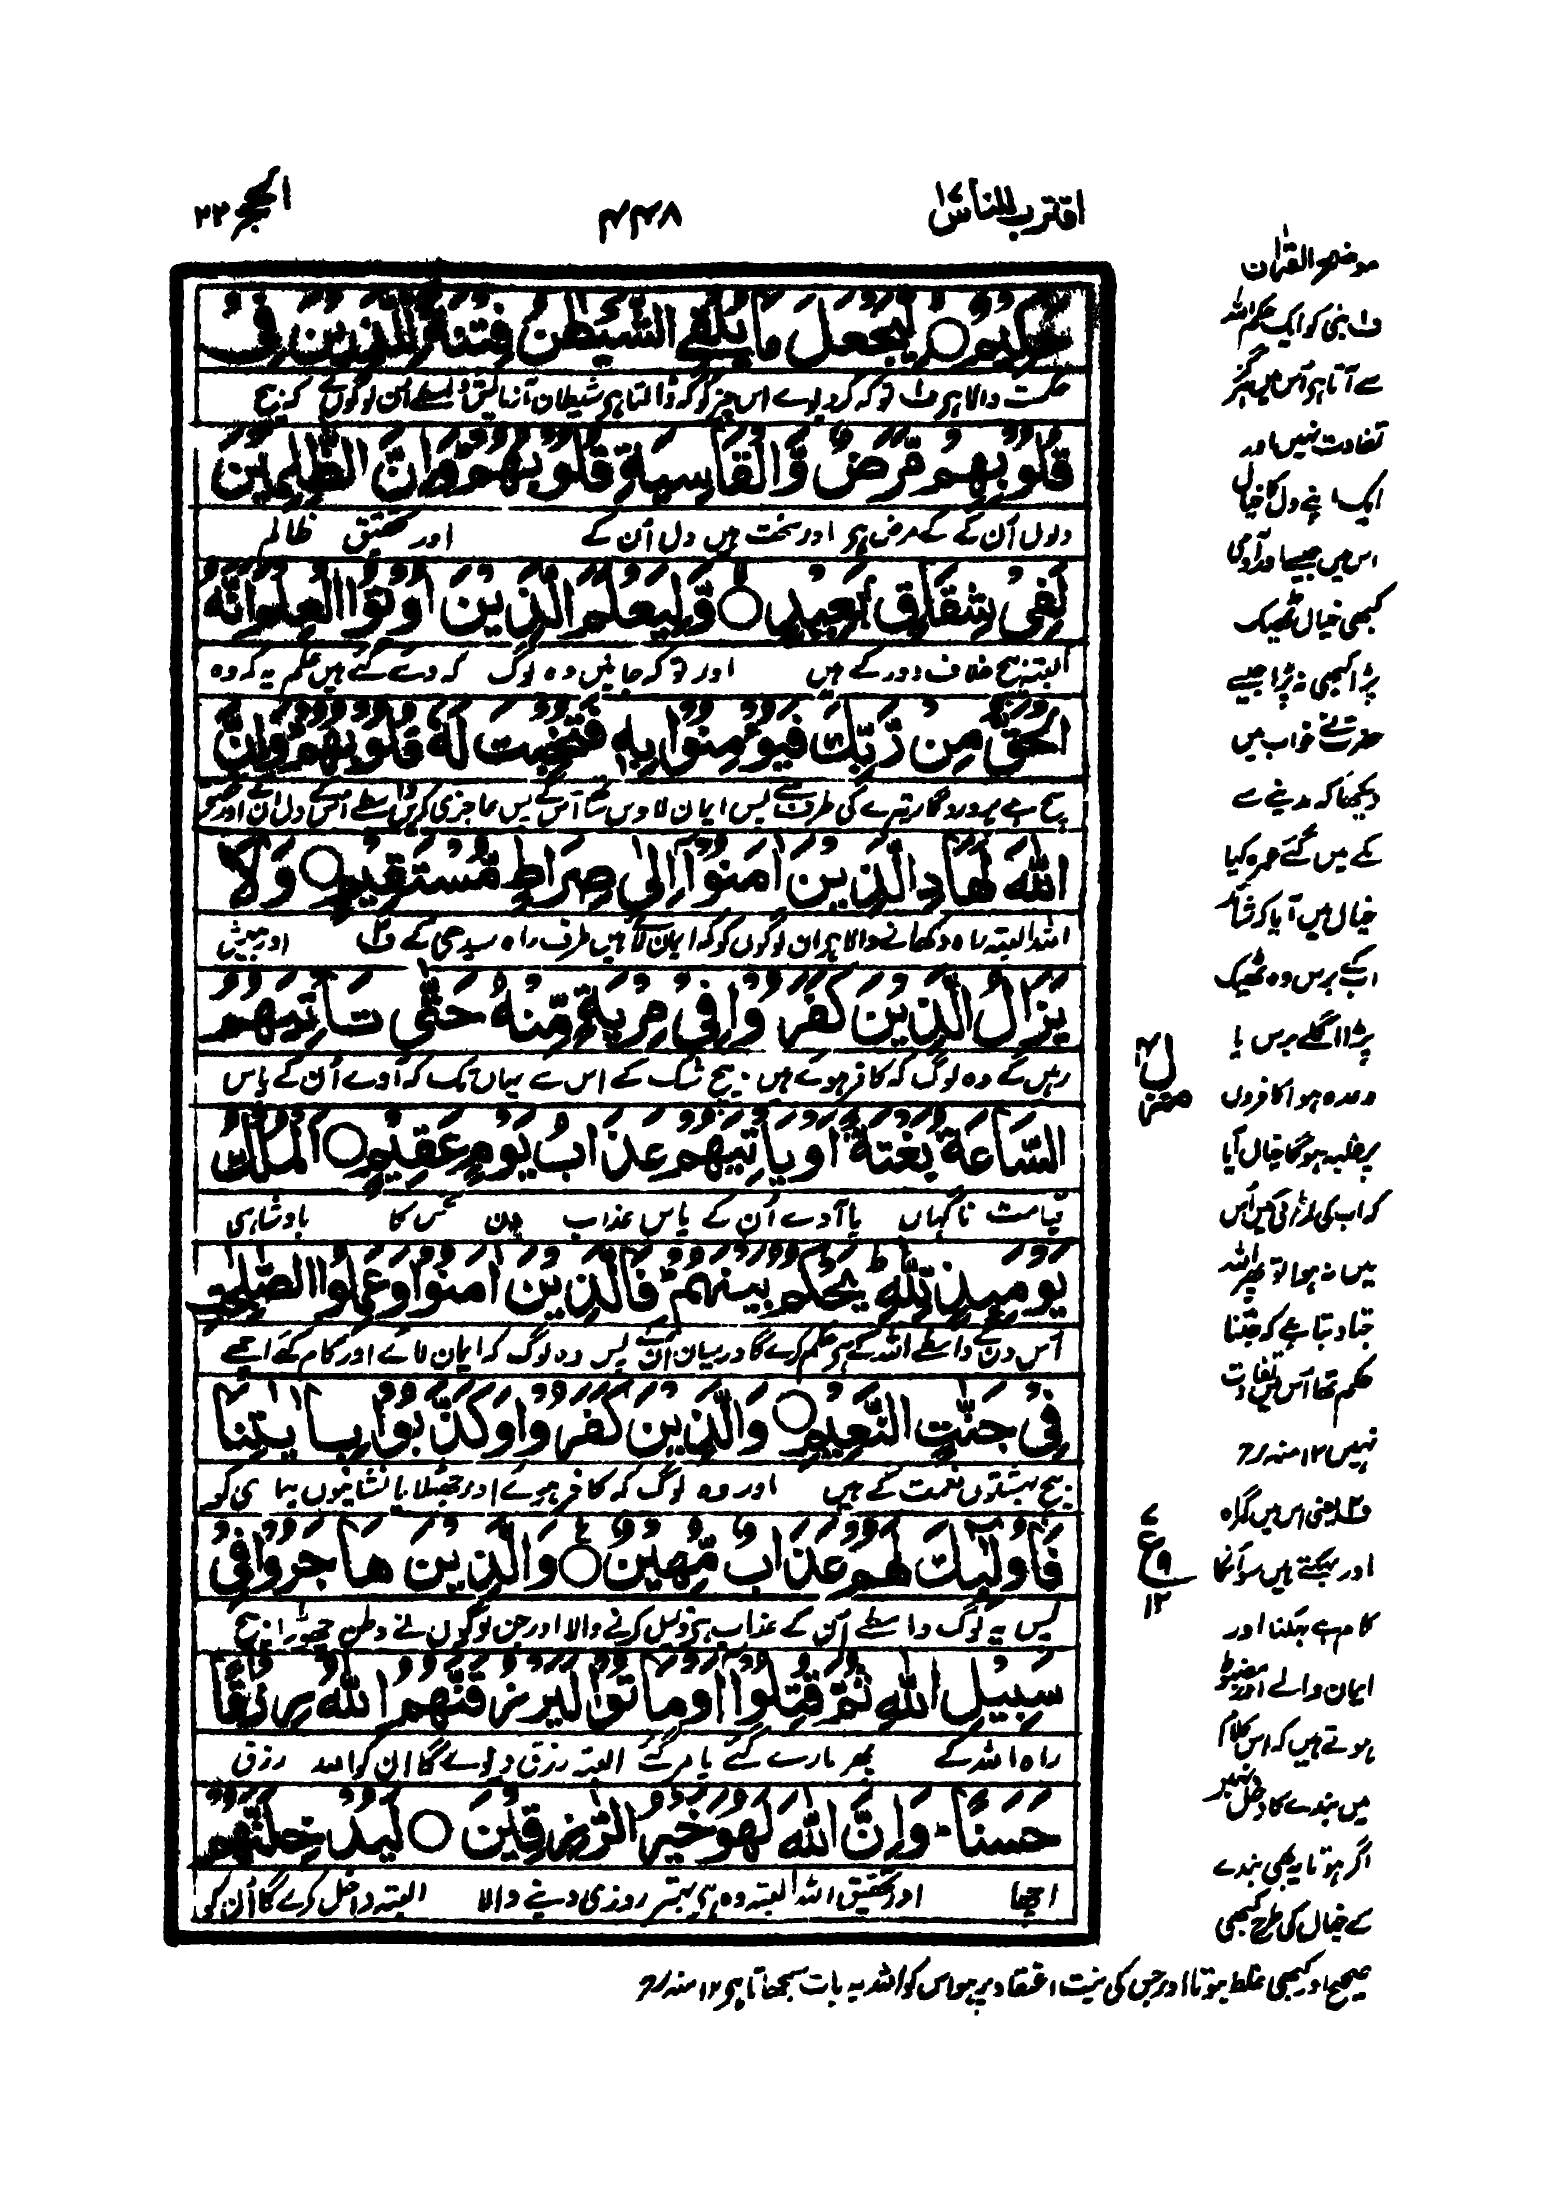 اقترب للناس ۱۷
۴۴۸
الحج ۲۲
حَكِيْمٌ ۝ لِّيَجْعَلَ مَا يُلْقِي الشَّيْطٰنُ فِتْنَةً لِّلَّذِيْنَ فِيْ
حکمت والا ہی ف۱ تو کہ کر دیوے اس چیز کو کہ ڈالتا ہی شیطان آزمایش واسطے اُن لوگوں کے کہ بیچ
قُلُوْبِهِمْ مَّرَضٌ وَّالْقَاسِيَةِ قُلُوْبُهُمْ ؕ وَاِنَّ الظّٰلِمِيْنَ
دلوں اُن کے کے مرض ہی اور سخت ہیں دل اُن کے اور تحقیق ظالم
لَفِيْ شِقَاقٍ بَعِيْدٍ ۝ وَّلِيَعْلَمَ الَّذِيْنَ اُوْتُوا الْعِلْمَ اَنَّهُ
البتہ بیچ خلاف دور کے ہیں اور تو کہ جانیں وہ لوگ کہ دئے گئے ہیں علم یہ کہ وہ
الْحَقُّ مِنْ رَّبِّكَ فَيُؤْمِنُوْا بِهٖ فَتُخْبِتَ لَهٗ قُلُوْبُهُمْ ؕ وَاِنَّ
سچ ہے پروردگار تیرے کی طرف سے پس ایمان لاویں ساتھ اُس کے پس عاجزی کریں واسطے اُس کے دل ان کے اور تحقیق
اللّٰهَ لَهَادِ الَّذِيْنَ اٰمَنُوْٓا اِلٰى صِرَاطٍ مُّسْتَقِيْمٍ ۝ وَلَا
اللہ البتہ راہ دکھانے والا ہی ان لوگوں کو کہ ایمان لائے ہیں طرف راہ سیدھی کے ف۲ اور ہمیش
يَزَالُ الَّذِيْنَ كَفَرُوْا فِيْ مِرْيَةٍ مِّنْهُ حَتّٰى تَاْتِيَهُمُ
رہیں گے وہ لوگ کہ کافر ہوے ہیں بیچ شک کے اس سے یہاں تک کہ آوے اُن کے پاس
السَّاعَةُ بَغْتَةً اَوْ يَاْتِيَهُمْ عَذَابُ يَوْمٍ عَقِيْمٍ ۝ اَلْمُلْكُ
قیامت ناگہاں یا آوے اُن کے پاس عذاب دن کا بادشاہی
يَوْمَئِذٍ لِّلّٰهِ ؕ يَحْكُمُ بَيْنَهُمْ ؕ فَالَّذِيْنَ اٰمَنُوْا وَعَمِلُوا الصّٰلِحٰتِ
اُس دن واسطے اللہ کے ہی حکم کرے گا درمیان اُن کے پس وہ لوگ کہ ایمان لائے اور کام کئے اچھے
فِيْ جَنّٰتِ النَّعِيْمِ ۝ وَالَّذِيْنَ كَفَرُوْا وَكَذَّبُوْا بِاٰيٰتِنَا
بیچ بہشتوں نعمت کے ہیں اور وہ لوگ کہ کافر ہوے اور جھٹلایا نشانیوں ہماری کو
فَاُولٰٓئِكَ لَهُمْ عَذَابٌ مُّهِيْنٌ ۝ وَالَّذِيْنَ هَاجَرُوْا فِيْ
پس یہ لوگ واسطے اُن کے عذاب ہی ذلیل کرنے والا اور جن لوگوں نے وطن چھوڑا بیچ
سَبِيْلِ اللّٰهِ ثُمَّ قُتِلُوْٓا اَوْ مَاتُوْا لَيَرْزُقَنَّهُمُ اللّٰهُ رِزْقًا
راہ اللہ کے پھر مارے گئے یا مر گئے البتہ رزق دیوے گا ان کو اللہ رزق
حَسَنًا ؕ وَاِنَّ اللّٰهَ لَهُوَ خَيْرُ الرّٰزِقِيْنَ ۝ لَيُدْخِلَنَّهُمْ
اچھا اور تحقیق اللہ البتہ وہ ہی بہتر روزی دینے والا البتہ داخل کرے گا اُن کو
منزل ۴
ع
۷
۹
۱۲
موضح القرآن
ف۱ نبی کو ایک حکم اللہ
سے آتا ہی اُس میں ہرگز
تفاوت نہیں اور
ایک اپنے دل کا خیال
اس میں جیسے اور آدمی
کبھی خیال ٹھیک
پڑا کبھی نہ پڑا جیسے
حضرت نے خواب میں
دیکھا کہ مدینے سے
مکے میں گئے عمرہ کیا
خیال میں آیا کہ شاید
ابکے برس وہ ٹھیک
پڑا اگلے برس یا
وعدہ ہوا کافروں
پر غلبہ ہوگا خیال آیا
کہ اب کی لڑائی میں اُس
میں نہ ہوا تو پھر اللہ
جتا دیتا ہے کہ جتنا
حکم تھا اُس میں تفاوت
نہیں ۱۲ منہ رح
ف۲ یعنی اس میں گمراہ
اور بہکتے ہیں سو اُنکا
کام ہے بہکنا اور
ایمان والے اور مضبوط
ہوتے ہیں کہ اس کلام
میں بندے کا دخل نہیں
اگر ہوتا یہ بھی بندے
کے خیال کی طرح کبھی
صحیح اور کبھی غلط ہوتا اور جس کی نیت اعتقاد پر ہو اس کو اللہ یہ بات سمجھاتا ہی ۱۲ منہ رح